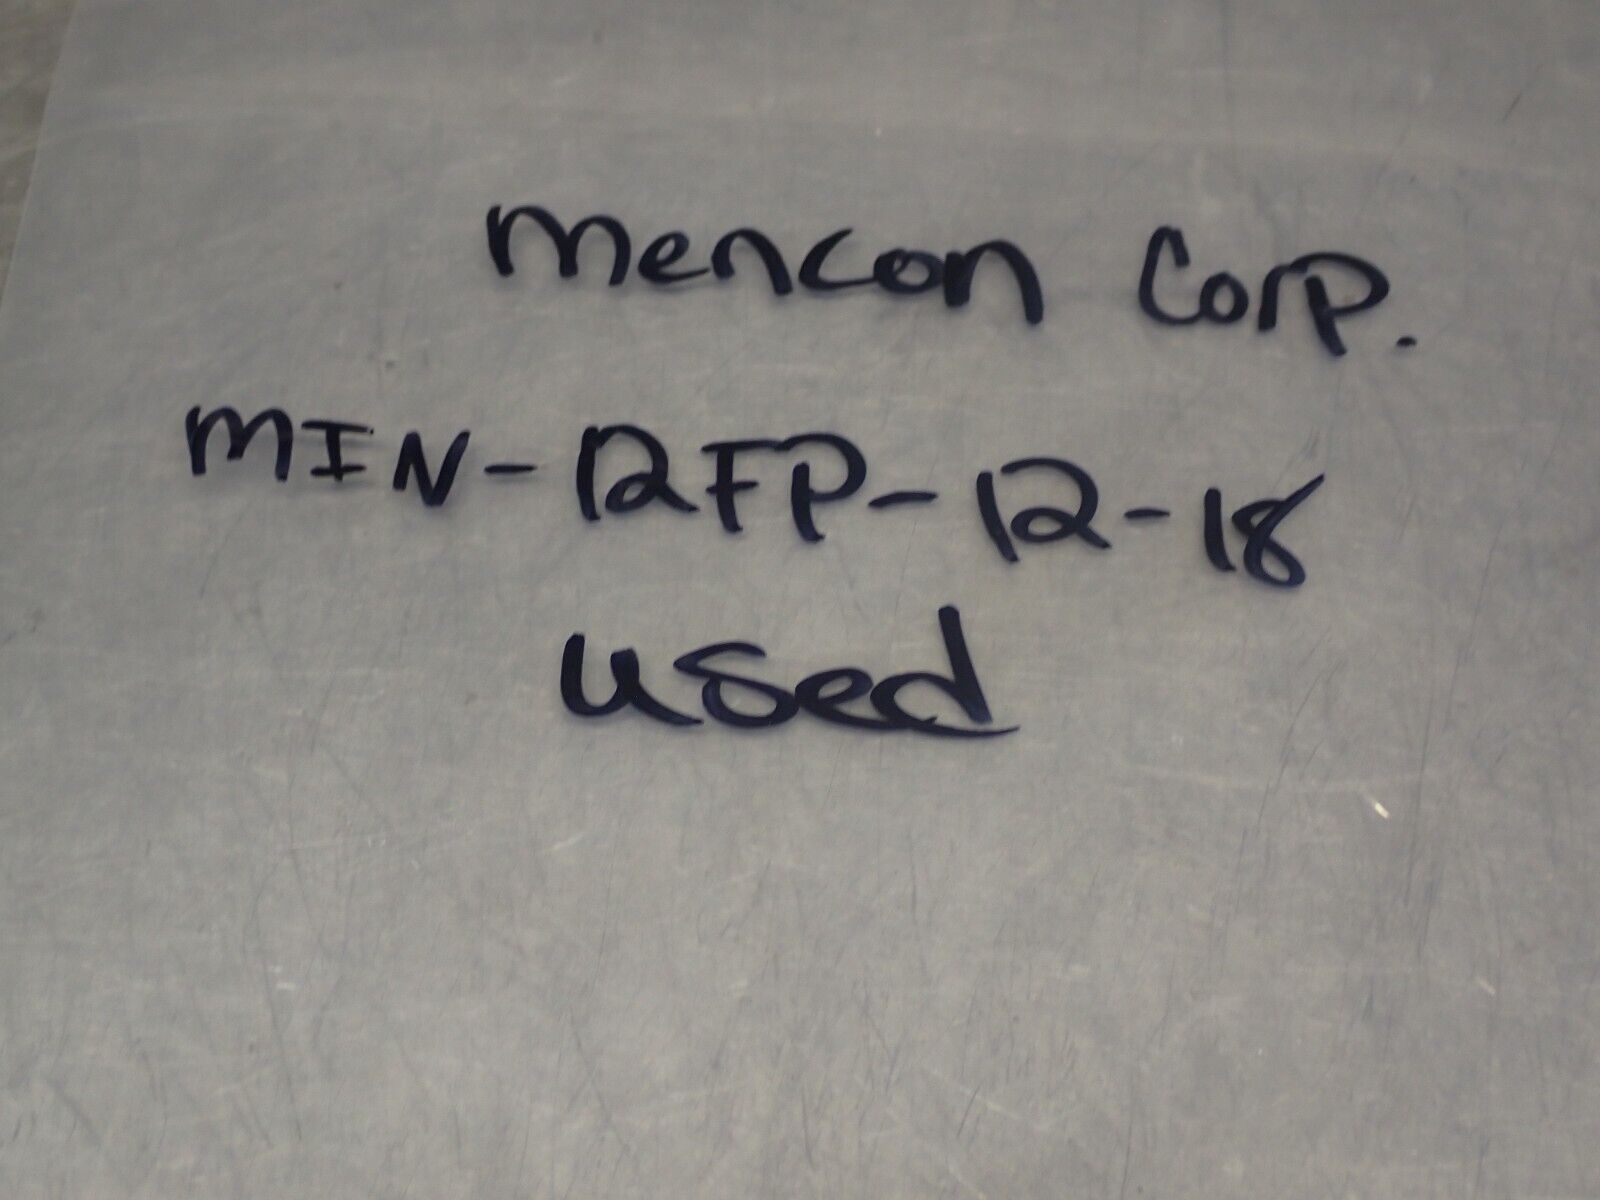 Mencon Corp.
MIN-12FP-12-18
used